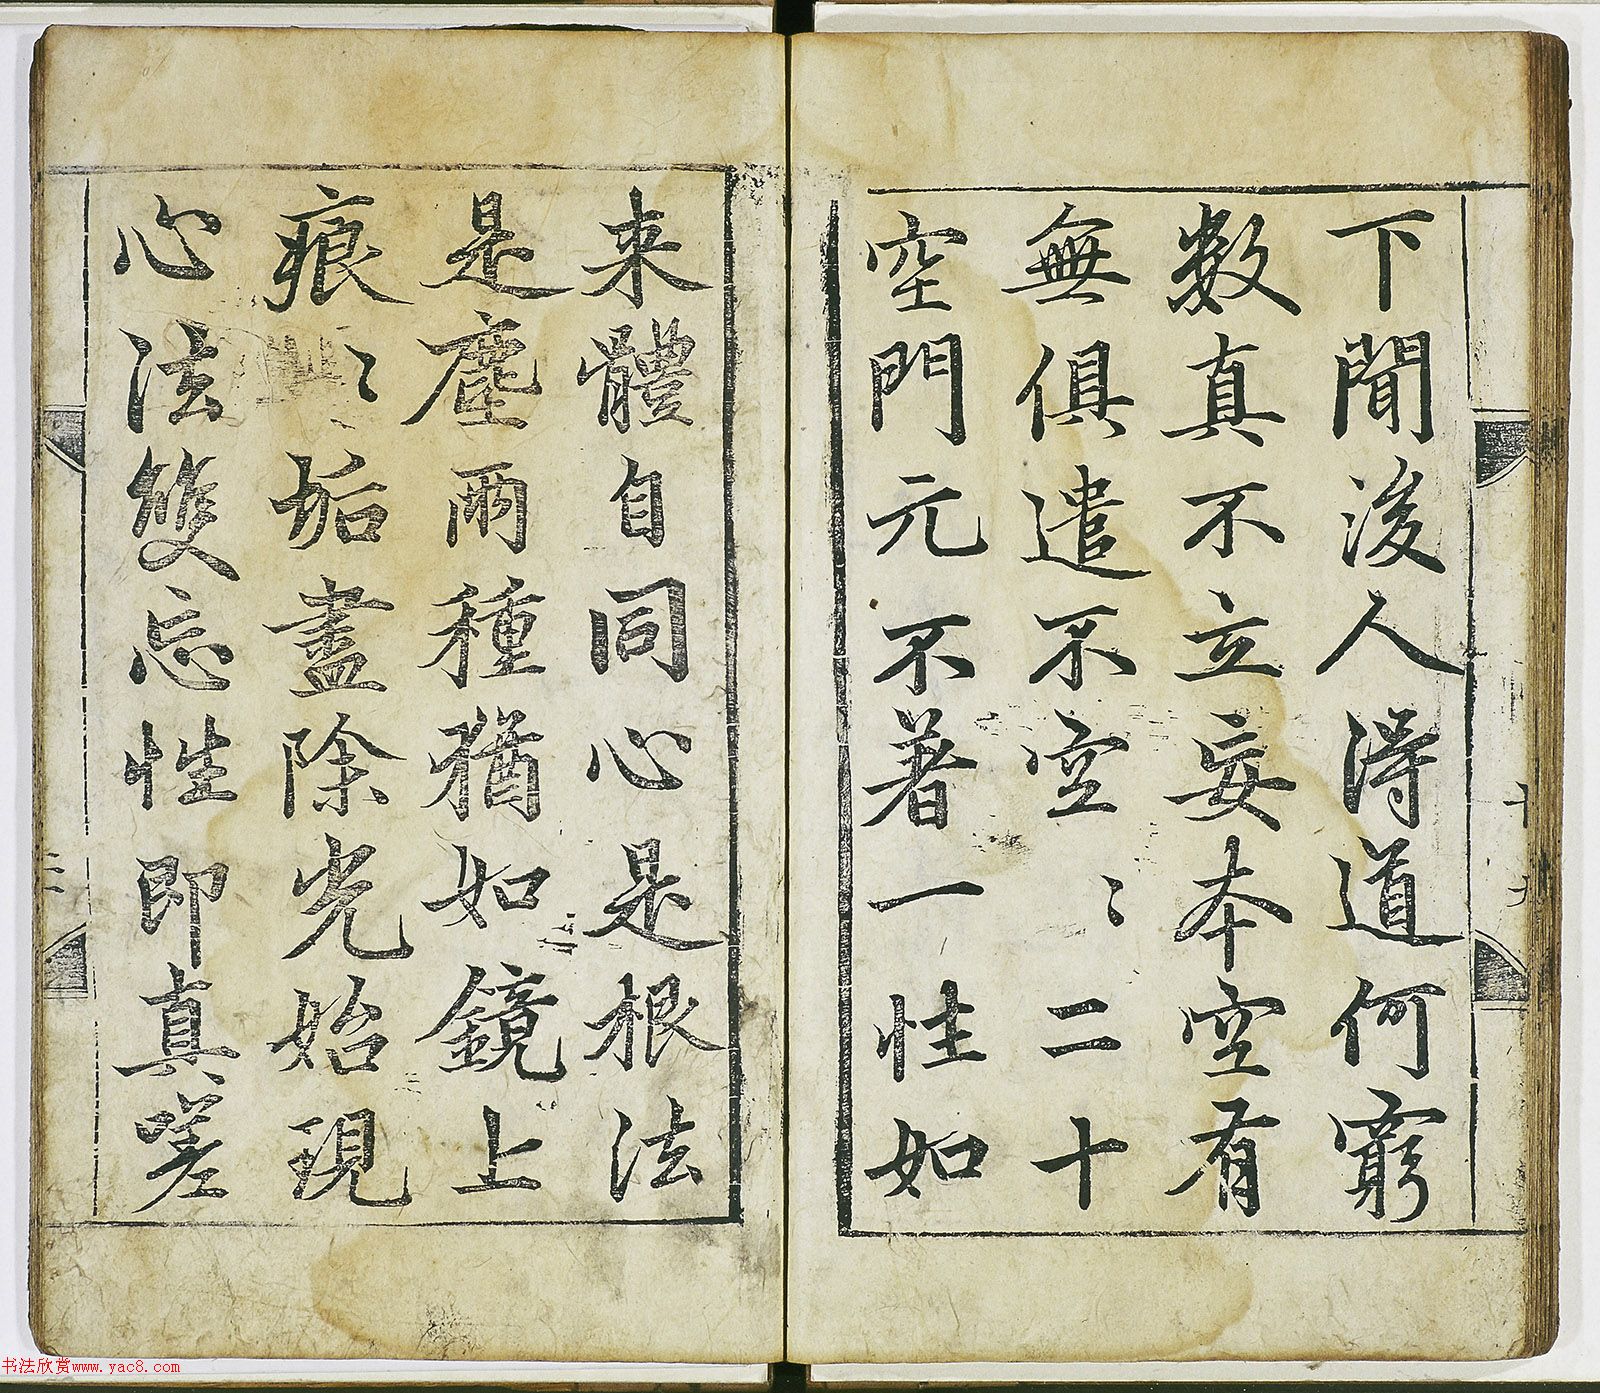 下閒後人得道何窮
數真不立妄本空有
無俱遣不空〻二十
空門元不著一性如
来體自同心是根法
是塵兩種猶如鏡上
痕〻垢盡除光始現
心法雙忘性即真嗟
十九
二
书法欣赏www.yac8.com